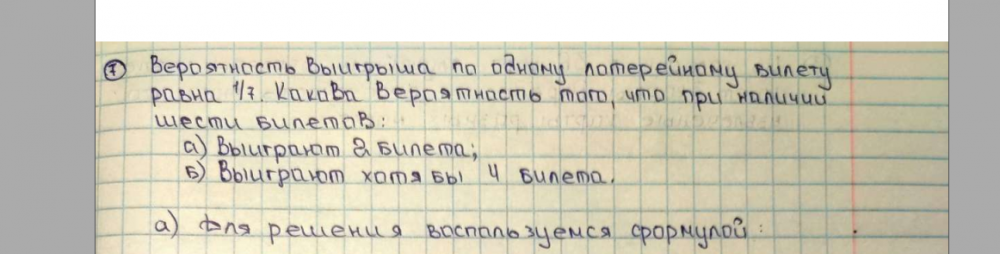 ⑦ Вероятность выигрыша по одному лотерейному билету
равна 1/7. Какова вероятность того, что при наличии
шести билетов:
а) Выиграют 2 билета;
б) Выиграют хотя бы 4 билета.
а) Для решения воспользуемся формулой: